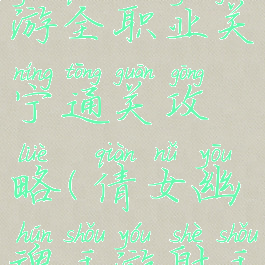 游全职业关
níng tōng guān gōng
宁通关攻
lüè qiàn nǚ yōu
略(倩女幽
hún shǒu yóu shè shǒu
魂手游射手